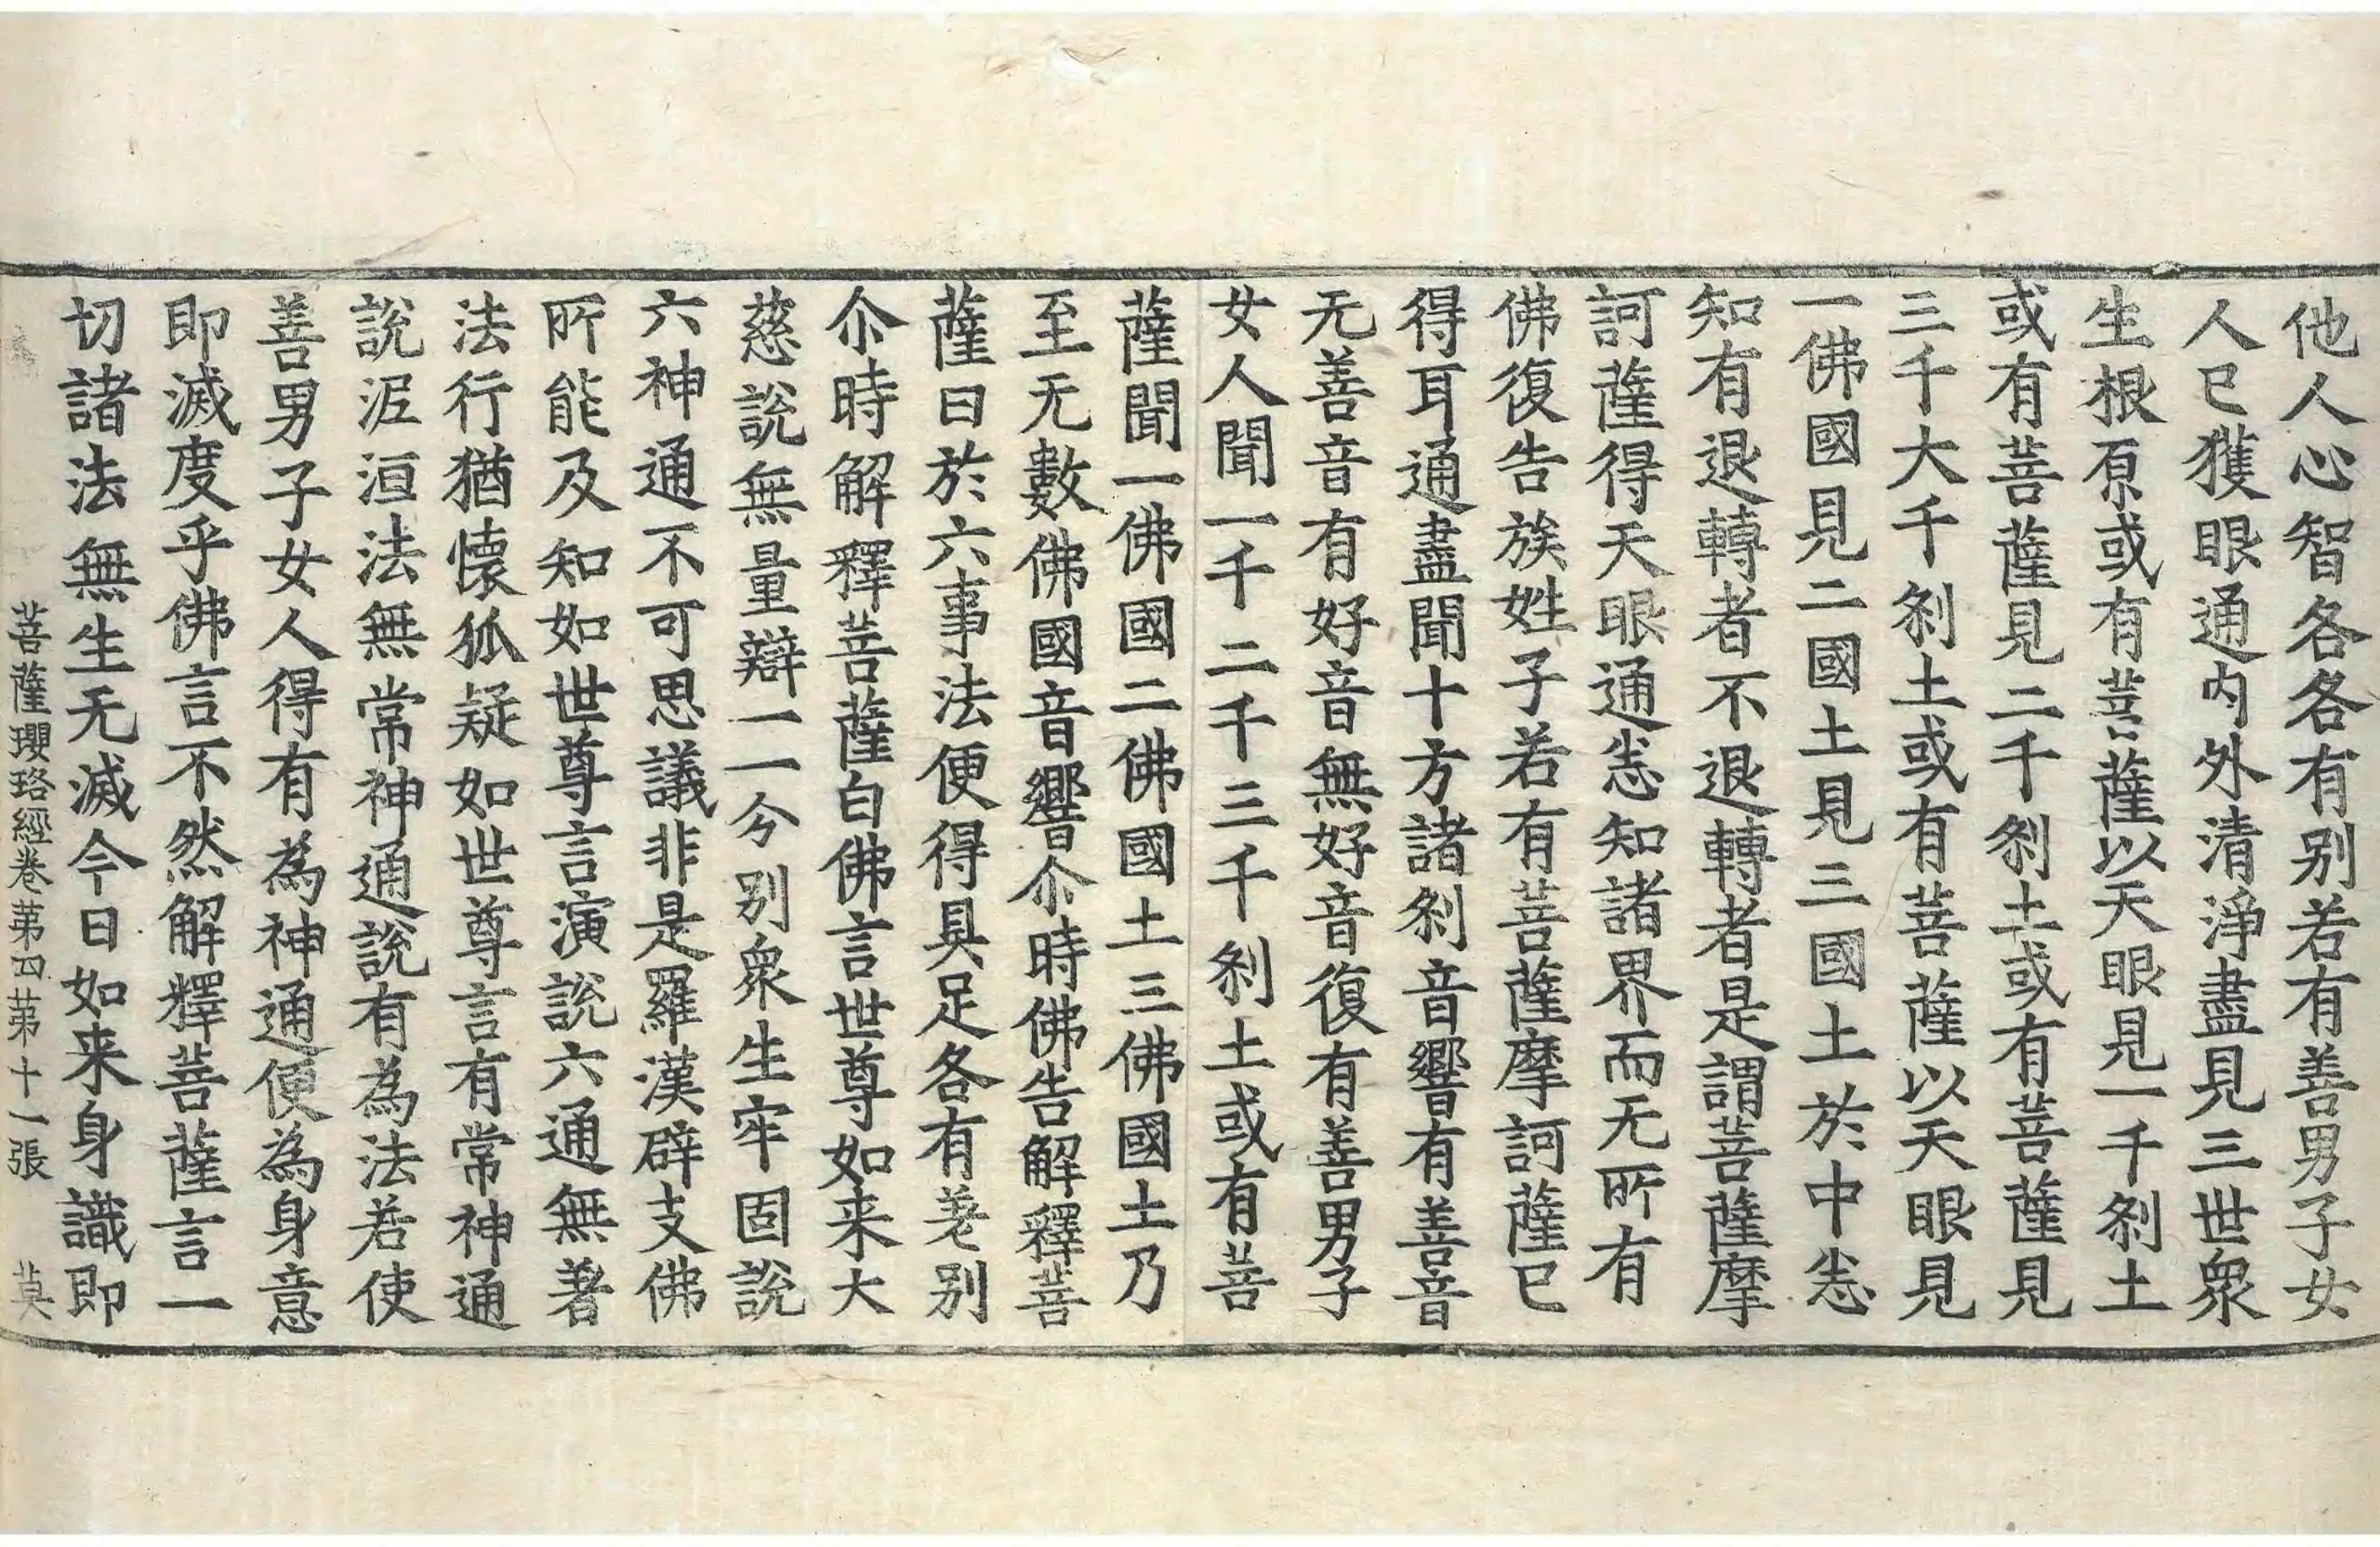 他人心智各各有別若有善男子女
人已獲眼通內外清淨盡見三世衆
生根原或有菩薩以天眼見一千刹土
或有菩薩見二千刹土或有菩薩見
三千大千刹土或有菩薩以天眼見
一佛國見二國土見三國土於中悉
知有退轉者不退轉者是謂菩薩摩
訶薩得天眼通悉知諸界而无所有
佛復告族姓子若有菩薩摩訶薩已
得耳通盡聞十方諸刹音響有善音
无善音有好音無好音復有善男子
女人聞一千二千三千刹土或有菩
薩聞一佛國二佛國土三佛國土乃
至无數佛國音響尒時佛告解釋菩
薩曰於六事法便得具足各有差別
尒時解釋菩薩白佛言世尊如来大
慈說無量辯一一今別衆生牢固說
六神通不可思議非是羅漢辟支佛
所能及知如世尊言演說六通無著
法行猶懷狐疑如世尊言有常神通
說泥洹法無常神通說有為法若使
善男子女人得有為神通便為身意
即滅度乎佛言不然解釋菩薩言一
切諸法無生无滅今日如来身識即
菩薩瓔珞經卷第四 第十一張 莫